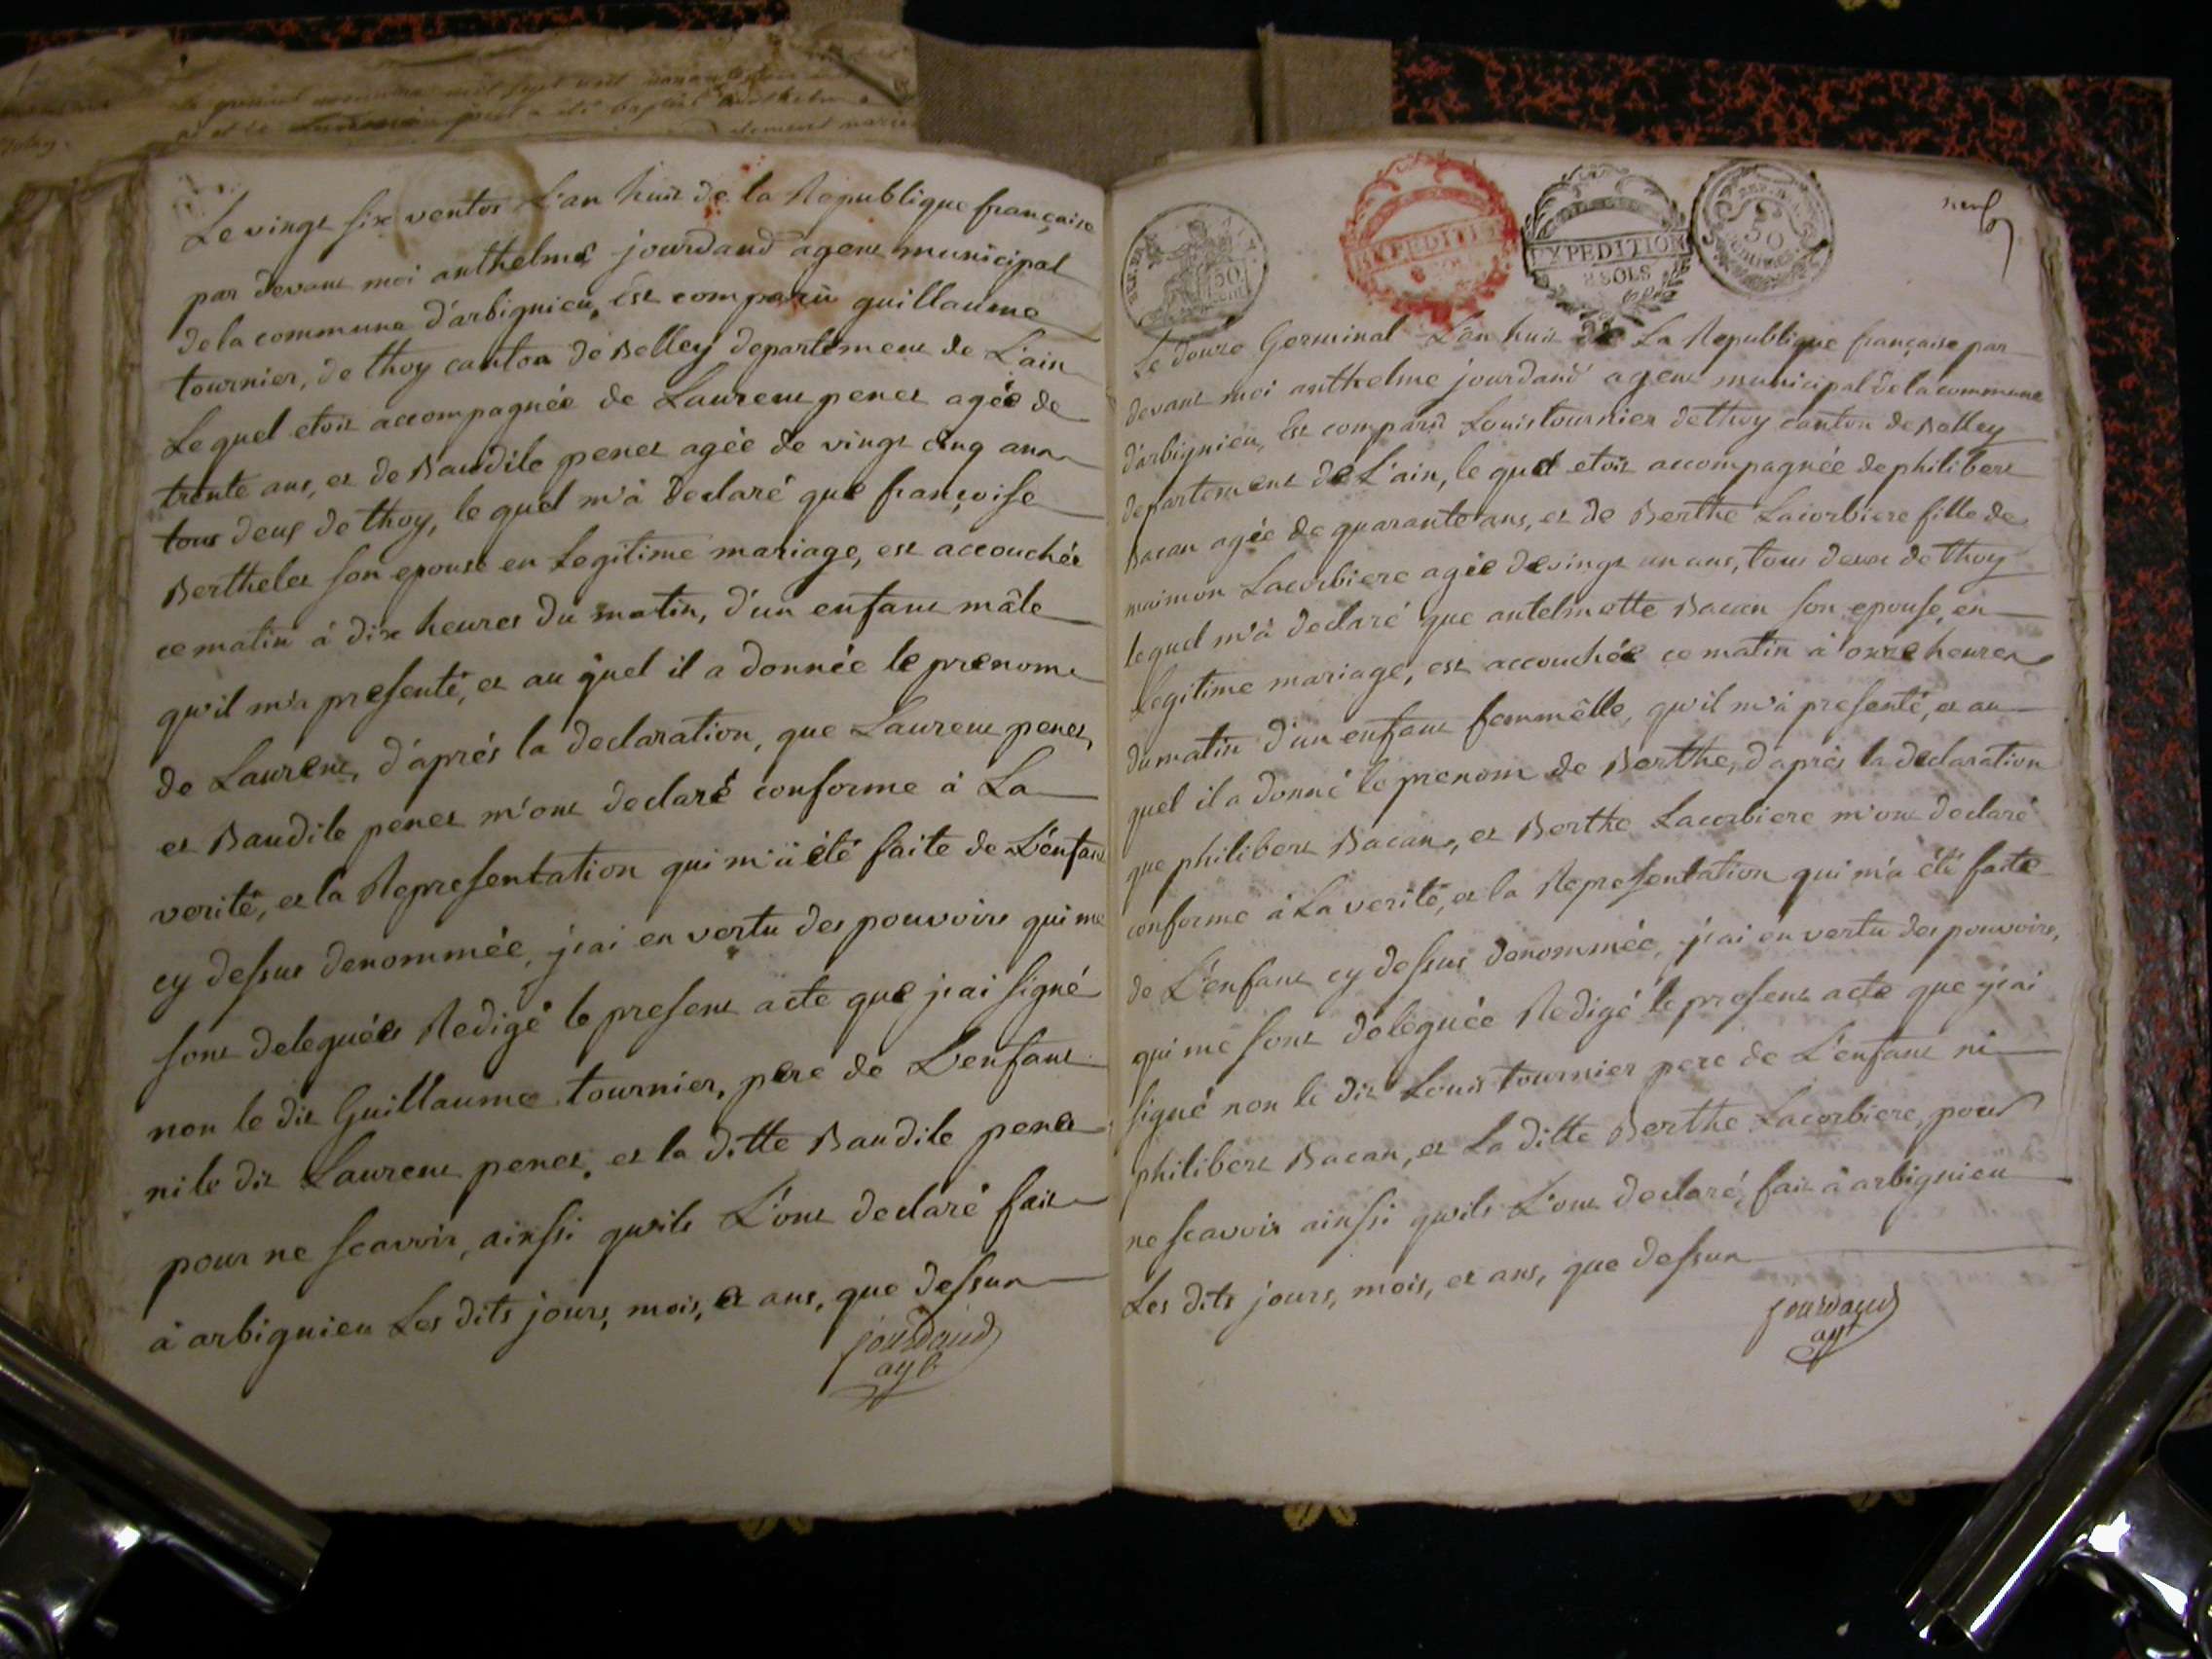 Le vingt six ventos L'an huit de la Republique française
par devant moi anthelme jourdand agent municipal
de la commune d'arbignieu, Est comparu guillaume
tournier, de thoy canton de Belley departement de L'ain
Lequel etoit accompagnée de Laurent penet agée de
trente ans, et de Baudile penet agée de vingt cinq ans
tous deux de thoy, le quel m'a declaré que françoise
Berthelet son epouse en Legitime mariage, est accouchée
ce matin à dix heures du matin, d'un enfant mâle
qu'il m'a presenté, et au quel il a donnée le prenom
de Laurent, d'aprés la declaration, que Laurent penet,
et Baudile penet m'ont declaré conforme à La
verité, et la Representation qui m'a été faite de L'enfant
cy dessus denommée, j'ai en vertu des pouvoirs qui me
sont deleguées Redigé le present acte que j'ai signé
non le dit Guillaume tournier, pere de L'enfant
ni le dit Laurent penet, et la ditte Baudile penet
pour ne scavoir, ainssi qu'ils L'ont declaré fait
à arbignieu Les dits jours, mois, et ans, que dessus
jourdand
agt
neuf
EXPEDITION
8 SOLS
EXPEDITION
8 SOLS
REP. FRA.
50
CENTIMES
50
Le douze Germinal L'an huit de La Republique française par
devant moi anthelme jourdand agent municipal de la commune
d'arbignieu, Est comparu Louis tournier de thoy canton de Belley
departement de L'ain, le quel etoit accompagnée de philibert
Bacan agée de quarante ans, et de Berthe Lacorbiere fille de
maimon Lacorbiere agée de vingt un ans, tous deux de thoy
lequel m'a declaré que antelmette Bacan son epouse, en
Legitime mariage, est accouchée ce matin à onze heures
du matin d'un enfant femmêlle, qu'il m'a presenté, et au
quel il a donné le prenom de Berthe, d'aprés la declaration
que philibert Bacan, et Berthe Lacorbiere m'ont declaré
conforme à La verité, et la Representation qui m'a été faite
de L'enfant cy dessus denommée, j'ai en vertu des pouvoirs,
qui me sont déleguée Redigé le present acte que j'ai
signé non le dit Louis tournier pere de L'enfant ni
philibert Bacan, et La ditte Berthe Lacorbiere, pour
ne scavoir ainssi qu'ils L'ont declaré, fait à arbignieu
Les dits jours, mois, et ans, que dessus
jourdand
agt